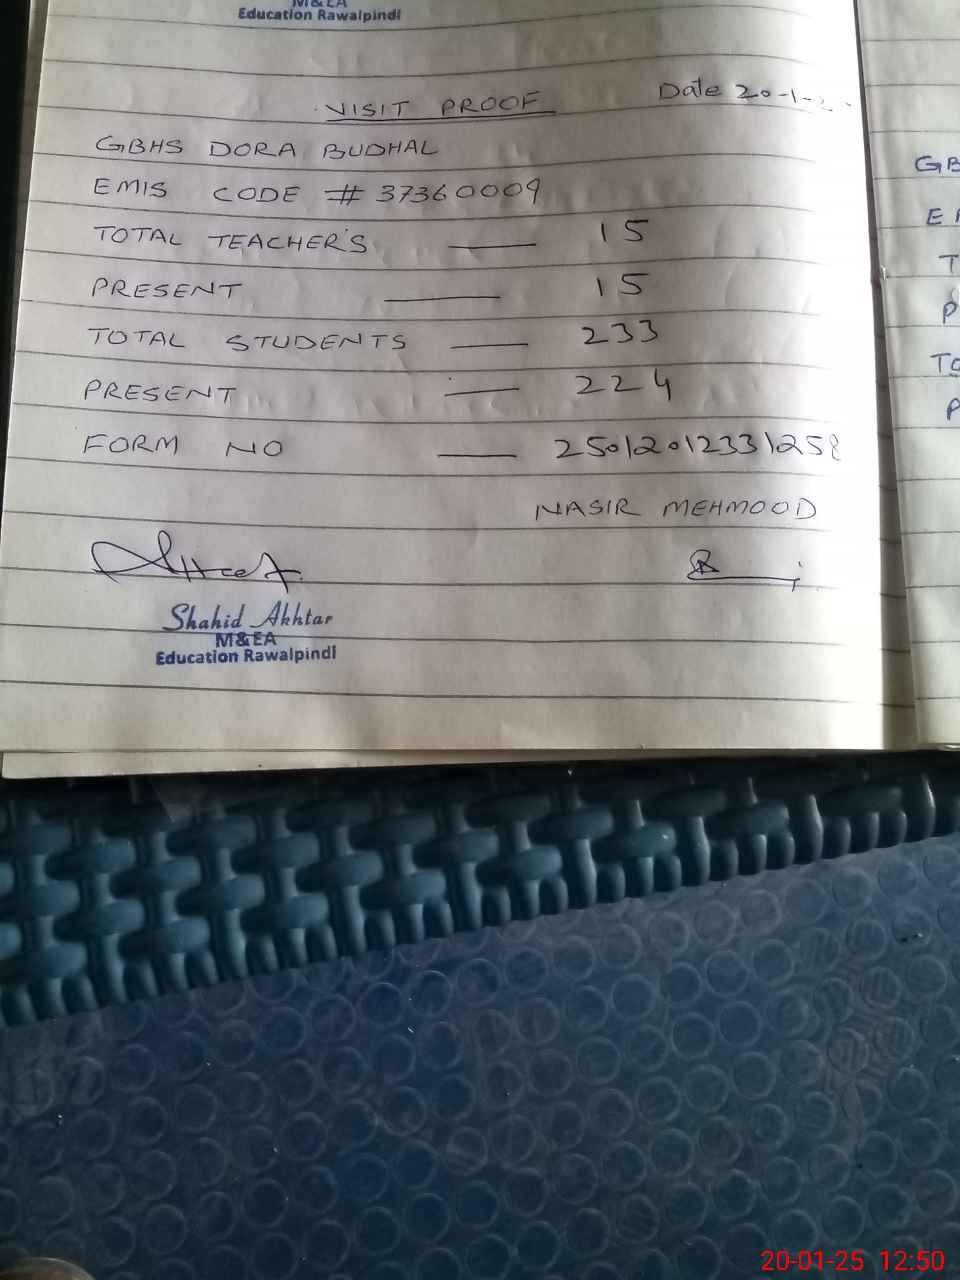 M&EA
Education Rawalpindi
VISIT PROOF
Date 20-1-
GBHS DORA BUDHAL
EMIS CODE # 37360009
TOTAL TEACHER'S — 15
PRESENT — 15
TOTAL STUDENTS — 233
PRESENT — 224
FORM NO — 25012012331258
NASIR MEHMOOD
Shahid Akhtar
M&EA
Education Rawalpindi
GB
E
T
P
TO
P
20-01-25 12:50